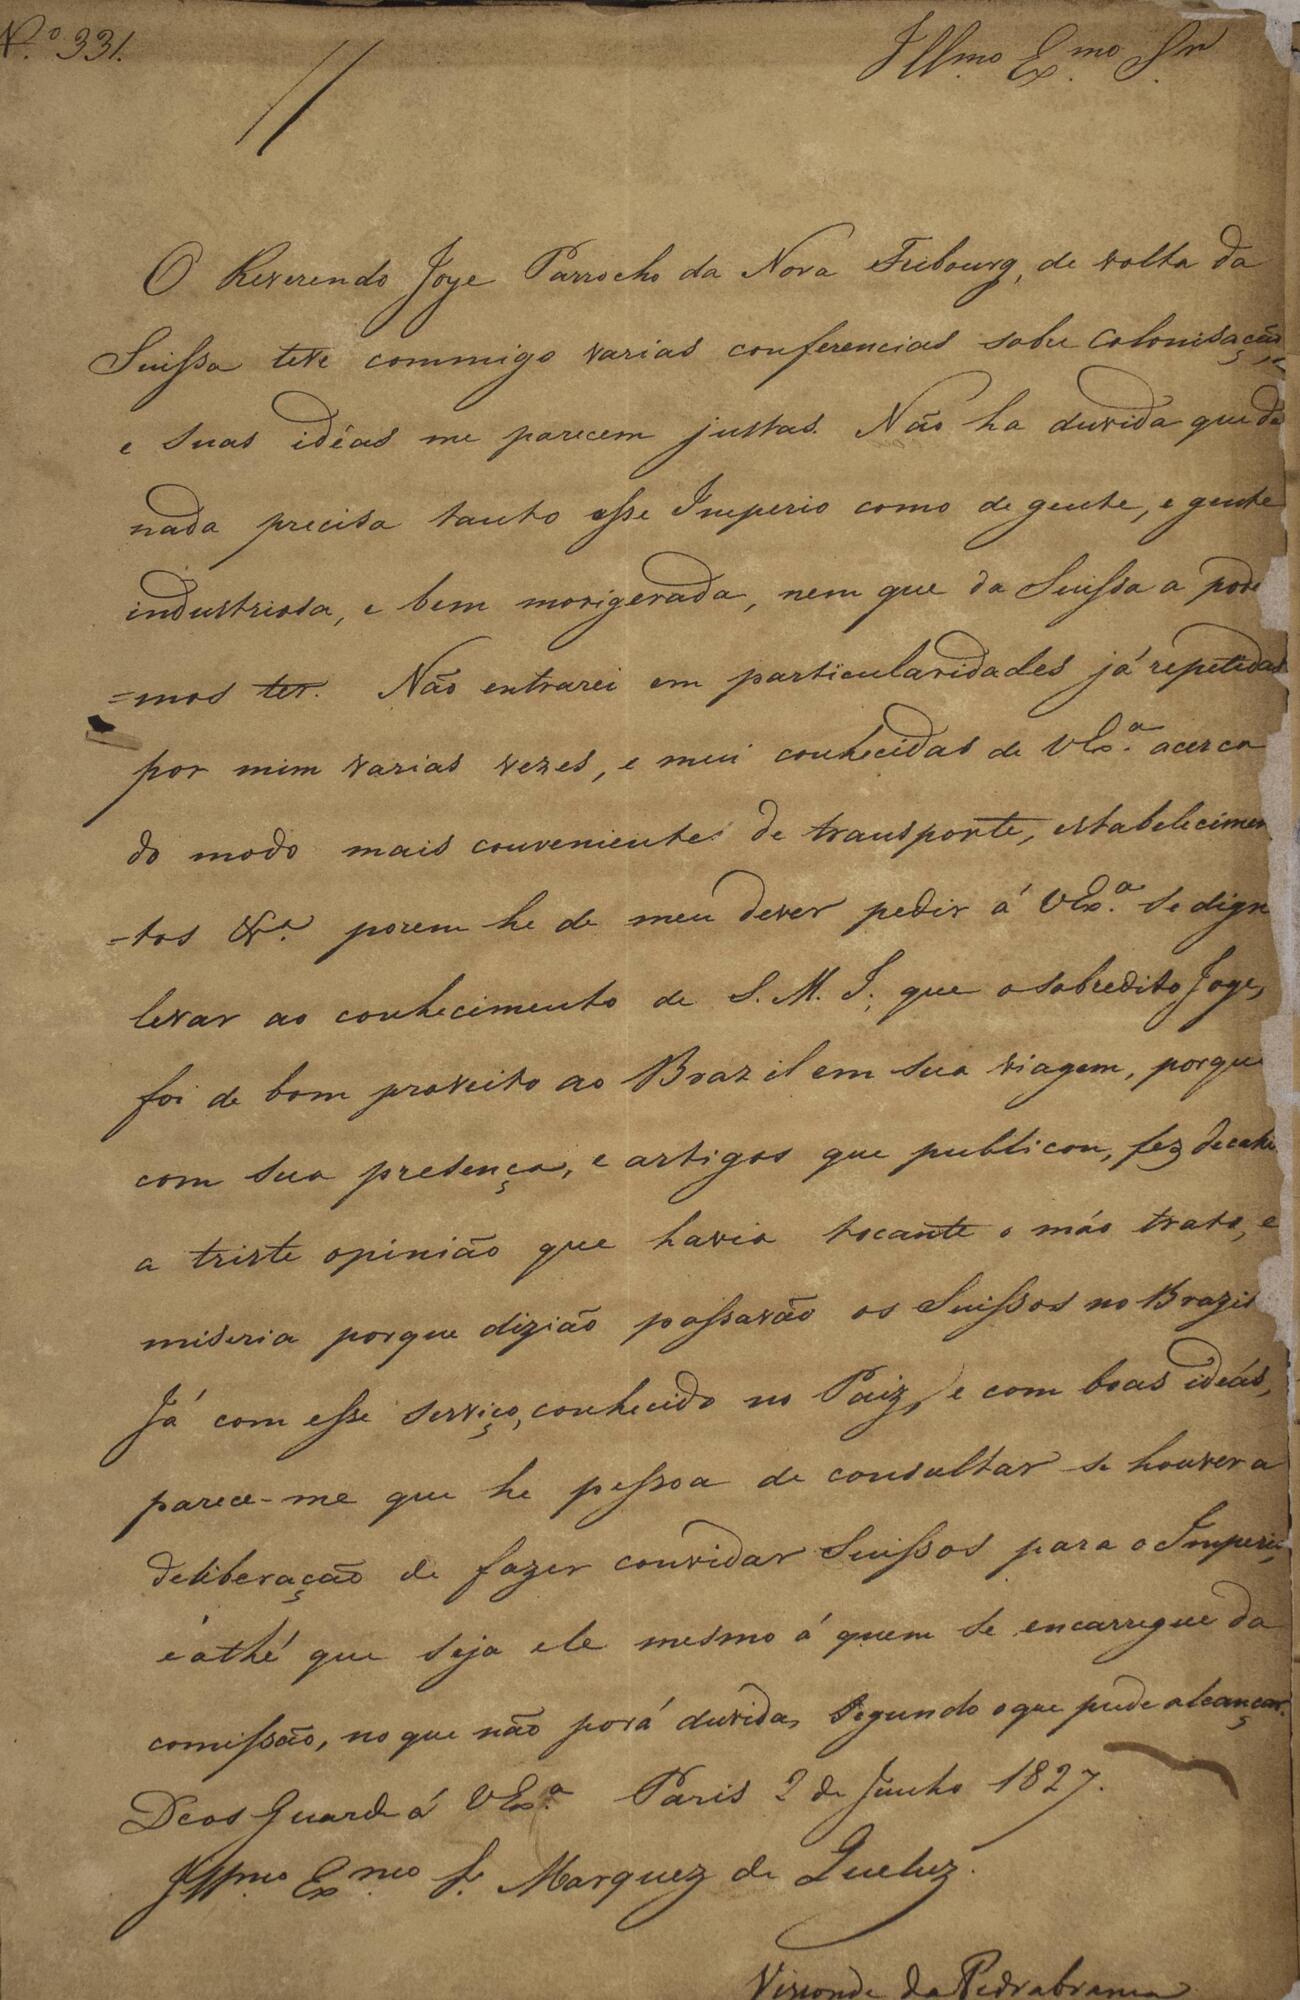 N.º 331.
Illmo Exmo Snr
O Reverendo Joye Parrocho da Nova Fribourg, de volta da
Suissa teve commigo varias conferencias sobre Colonisação,
e suas idéas me parecem justas. Não ha duvida que de
nada precisa tanto esse Imperio como de gente, e gente
industriosa, e bem morigerada, nem que da Suissa a pode
=mos ter. Não entrarei em particularidades já repetidas
por mim varias vezes, e mui conhecidas de VEx.ª acerca
do modo mais conveniente de transporte, estabelecimen
=tos &ª porem he de meu dever pedir á VEx.ª se digne
levar ao conhecimento de S. M. I. que o sobredito Joye,
foi de bom proveito ao Brazil em sua viagem, porque
com sua presença, e artigos que publicou, fez decahir
a triste opinião que havia tocante o máo trato, e
miseria porque dizião passavão os Suissos no Brazil
Já com esse serviço, conhecido no Paiz, e com boas idéas,
parece-me que he pessoa de consultar se houver a
deliberação de fazer convidar Suissos para o Imperio,
e athé que seja ele mesmo á quem se encarregue da
comissão, no que não porá duvida, segundo o que pude alcançar.
Deos Guarde á VEx.ª Paris 2 de Junho 1827.
Illmo Exmo S.r Marquez de Queluz.
Visconde da Pedrabranca